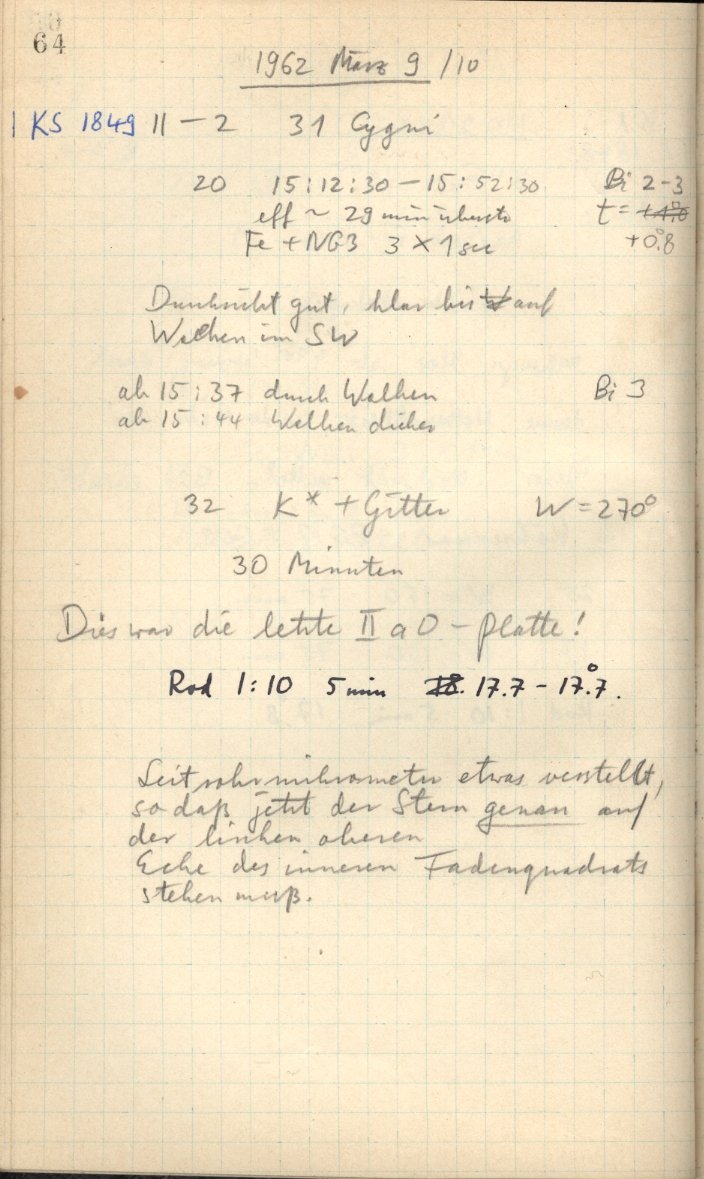 64
1962 März 9/10
1 KS 1849 II – 2 31 Cygni
20 15:12:30 – 15:52:30 Bi 2-3
eff ~ 29 min t = +1.°0
Fe + NG3 3 × 1 sec +0.°8
Durchsicht gut, klar bis auf
Wolken im SW
ab 15:37 durch Wolken Bi 3
ab 15:44 Wolken dicker
32 K* + Gitter W = 270°
30 Minuten
Dies war die letzte IIaO – Platte!
Rod 1:10 5 min 18. 17.7 – 17.°7.
Leitrohrmikrometer etwas verstellt,
so daß jetzt der Stern genau auf
der linken oberen
Ecke des inneren Fadenquadrats
stehen muß.